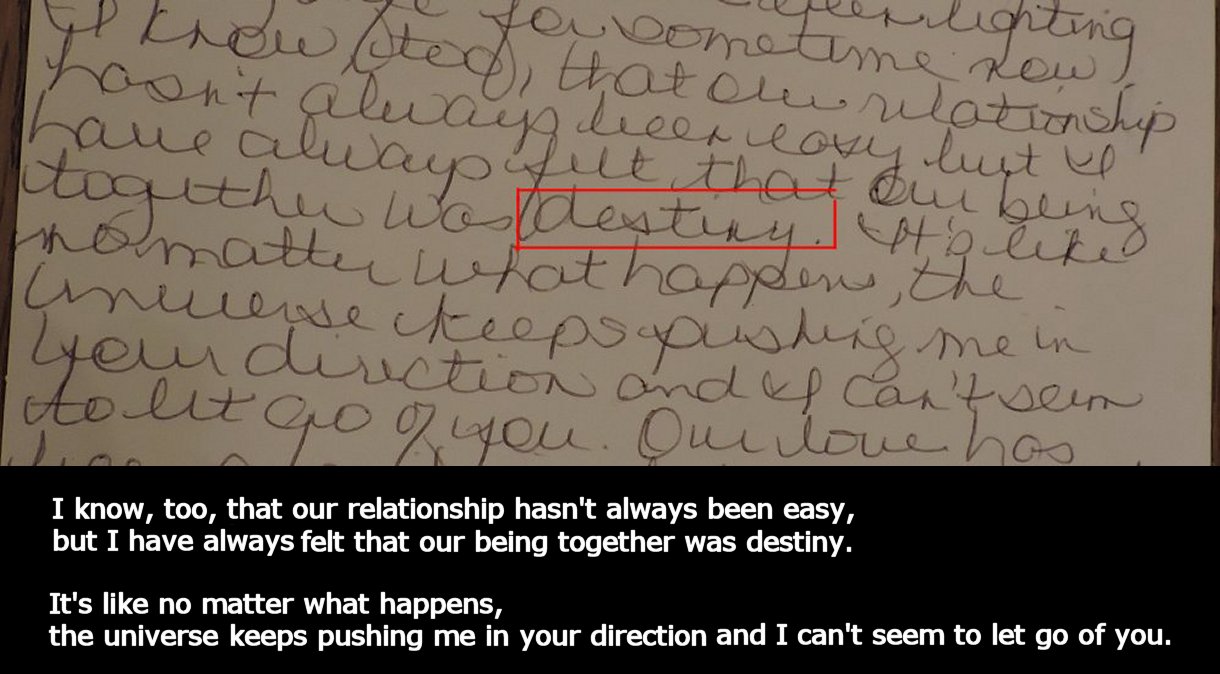 for sometime now,
I know (too), that our relationship
hasn't always been easy but I
have always felt that our being
together was destiny. It's like
no matter what happens, the
universe keeps pushing me in
your direction and I can't seem
to let go of you. Our love has
I know, too, that our relationship hasn't always been easy,
but I have always felt that our being together was destiny.
It's like no matter what happens,
the universe keeps pushing me in your direction and I can't seem to let go of you.